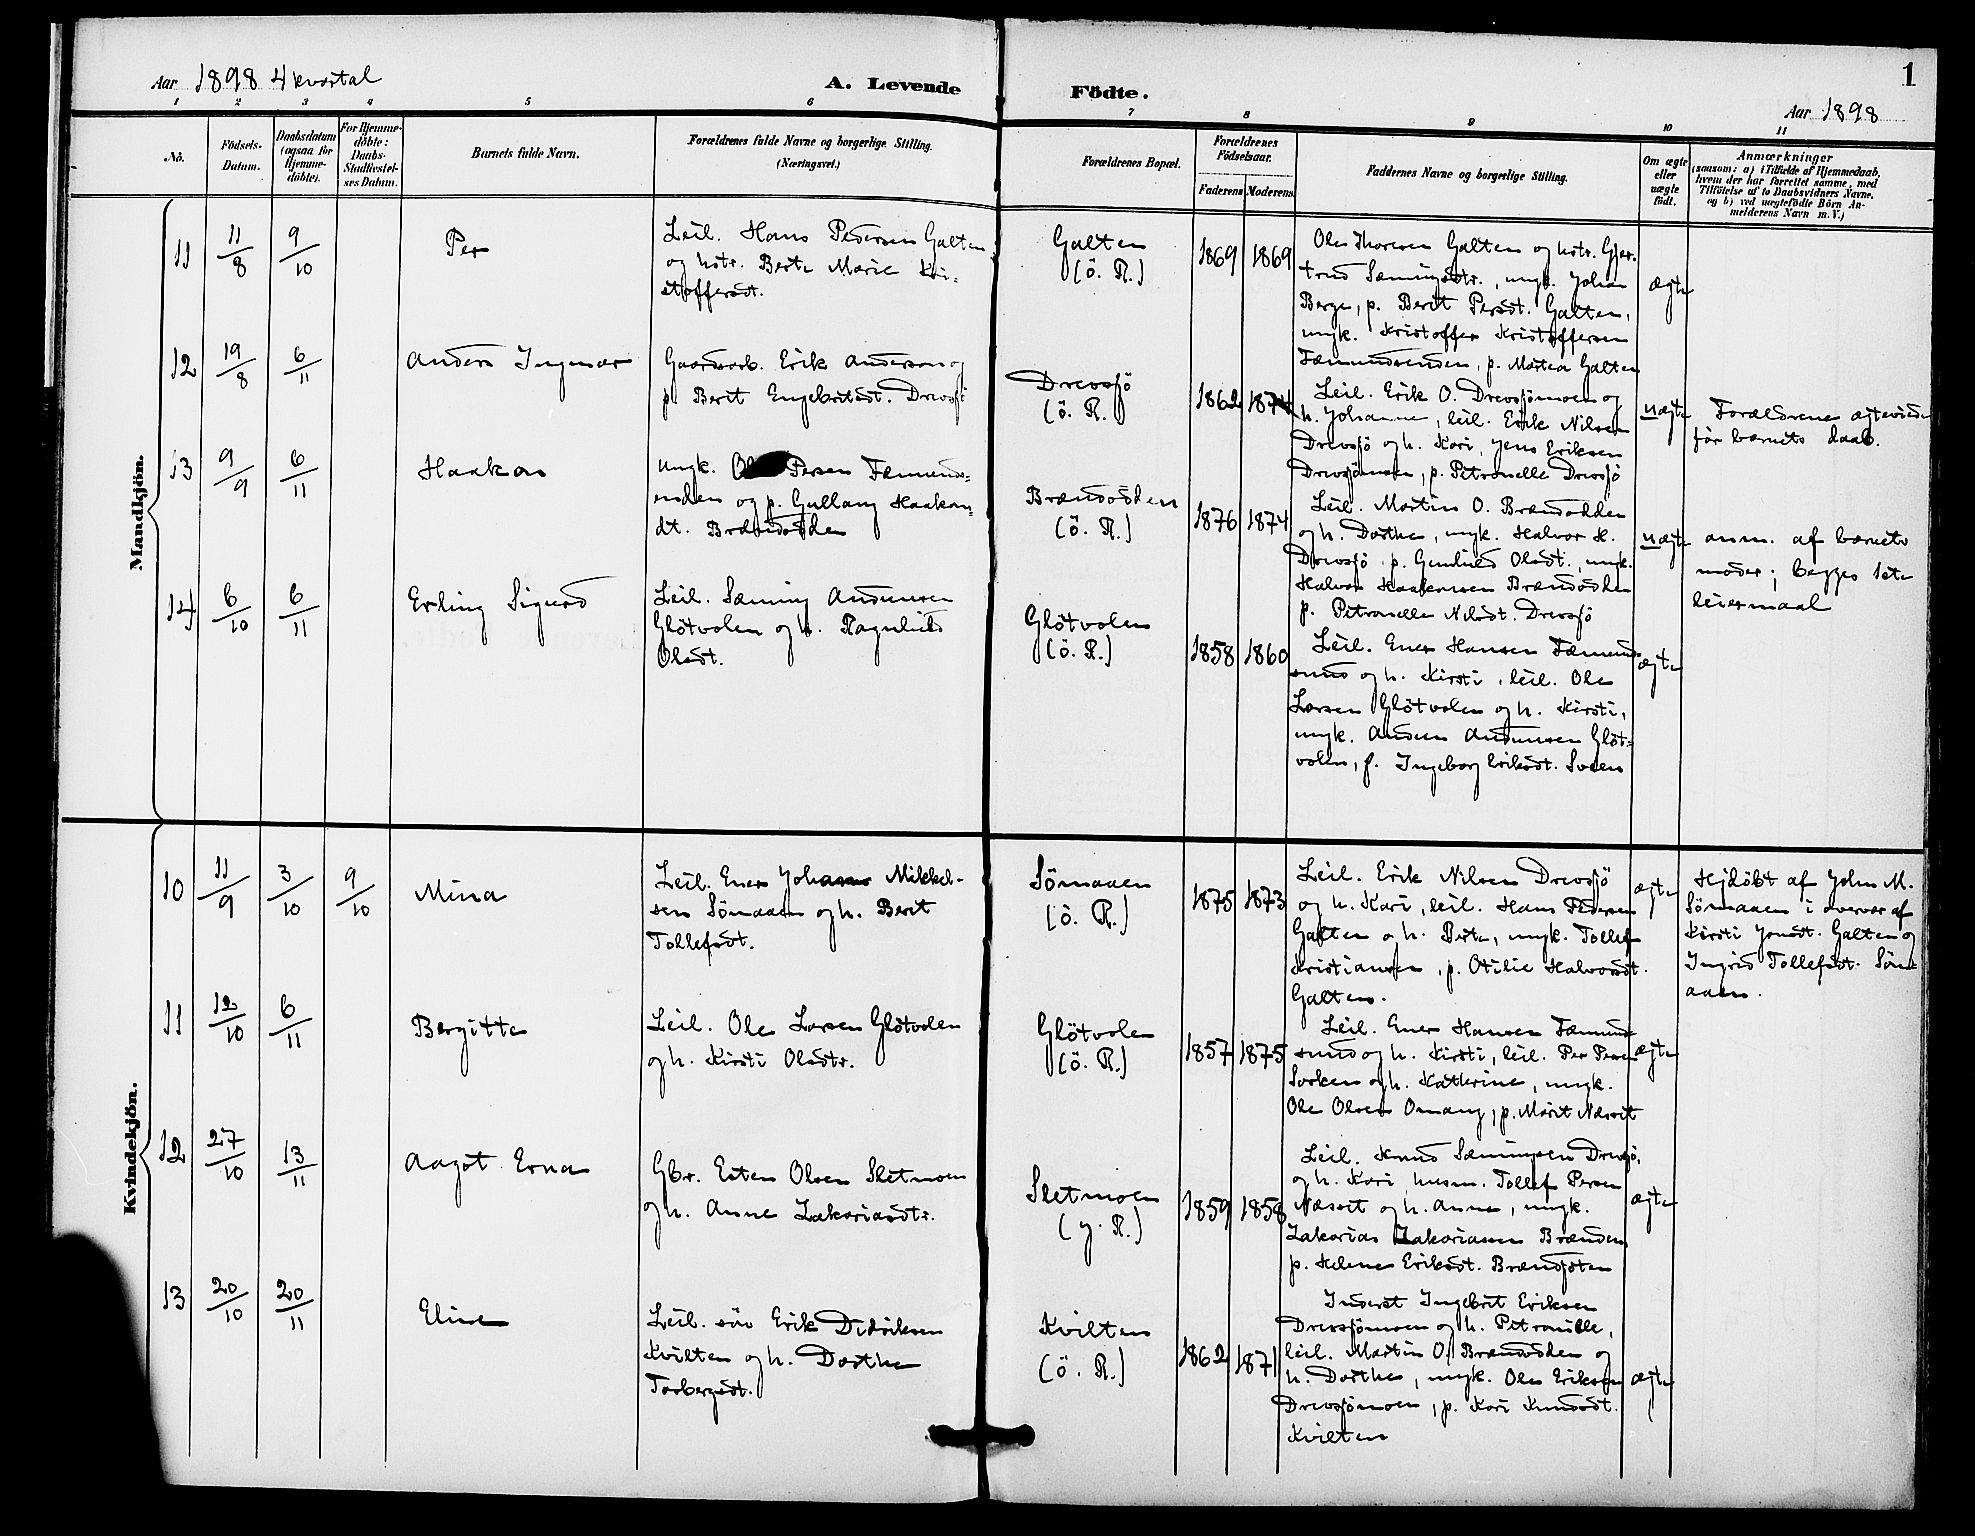 Aar 1898 4 kvartal
A. Levende
Födte.
1
Aar 1898
1 2 3 4 5 6 7 8 9 10 11
No.
Födsels-
Datum.
Daabsdatum
(ogsaa for
Hjemme-
döbte).
For Hjemme-
döbte:
Daabs-
Stadfæstel-
ses Datum.
Barnets fulde Navn.
Forældrenes fulde Navne og borgerlige Stilling.
(Næringsvei.)
Forældrenes Bopæl.
Forældrenes
Födselsaar.
Faderens
Moderens
Faddernes Navne og borgerlige Stilling.
Om ægte
eller
uægte
födt.
Anmærkninger
(saasom: a) i Tilfælde af Hjemmedaab,
hvem der har forrettet samme, med
Tilföielse af to Daabsvidners Navne,
og b) ved uægtefödte Börn An-
melderens Navn m. V.)
Mandkjön.
11
11/8
9/10
Per
Leil. Hans Pedersen Galten
og hstr. Berte Marie Kri-
stoffersdt.
Galten
(ö. R.)
1869
1869
Ole Thoresen Galten og hstr. Gjer-
trud Sæmingsdtr., ungk. Johan
Berge, p. Berit Persdt. Galten,
ungk. Kristoffer Kristoffersen
Fæmundsenden, p. Martea Galten
ægte
12
19/8
6/11
Anders Ingmar
Gaardarb. Erik Anderson og
p. Berit Engebritsdt. Drevsjö
Drevsjö
(ö. R.)
1862
1874
Leil. Erik O. Drevsjömoen og
h. Johanne, leil. Erik Nilsen
Drevsjö og h. Kari, Jens Eriksen
Drevsjömoen, p. Petronelle Drevsjö
uægte
Forældrene ægteviede
før barnets daab.
13
9/9
6/11
Haakon
Ungk. Persen Fæmunds-
enden og p. Gullaug Haakon-
dt. Brændodden
Brændodden
(ö. R.)
1876
1874
Leil. Martin O. Brændodden
og h. Dorthe, ungk. Halvor H.
Drevsjö, p. Gunhild Olsdt., ungk.
Halvor Haakensen Brændodden
p. Petronelle Nilsdt. Drevsjö
uægte
anm. af barnets
moder; begges 1ste
leiermaal
14
6/10
6/11
Erling Sigurd
Leil. Sæming Andersen
Glötvolen og h. Ragnhild
Olsdt.
Glötvolen
(ö. R.)
1858
1860
Leil. Ener Hansen Fæmund-
sund og h. Kirsti, leil. Ole
Larsen Glötvolen og h. Kirsti,
ungk. Anders Andersen Glöt-
volen, p. Ingeborg Eriksdt. Sveen
ægte
Kvindekjön.
10
11/9
3/10
9/10
Mina
Leil. Ener Johans Mikkel-
sen Sömaaen og h. Berit
Tollefsdt.
Sömaaen
(ö. R.)
1875
1873
Leil. Erik Nilsen Drevsjö
og h. Kari, leil. Hans Pedersen
Galten og h. Berte, ungk. Tollef
Kristiansen, p. Otilie Halvorsdt.
Galten.
ægte
Hjdöbt af John M.
Sömaaen i overvær af
Kirsti Jonsdt. Galten og
Ingrid Tollefsdt. Söm-
aaen.
11
12/10
6/11
Bergitte
Leil. Ole Larsen Glötvolen
og h. Kirsti Olsdtr.
Glötvolen
(ö. R.)
1857
1875
Leil. Ener Hansen Fæmund-
sund og h. Kirsti, leil. Per Persen
Sorken og h. Kathrine, ungk.
Ole Olsen Omang, p. Marit Næsset
ægte
12
27/10
13/11
Aagot Erna
Gbr. Esten Olsen Sletmoen
og h. Anne Zakariasdtr.
Sletmoen
(y. R.)
1859
1858
Leil. Knud Sæmingsen Drevsjö,
og h. Kari, husm. Tollef Persen
Næsset og h. Anne, ungk.
Zakarias Zakariasen Brænden
p. Helene Eriksdt. Brændjoten
ægte
13
20/10
20/11
Eline
Leil. sön Erik Didriksen
Kvilten og h. Dorthe
Torbergsdt.
Kvilten
(ö. R.)
1862
1871
Inderst Ingebrit Eriksen
Drevsjömoen og h. Petronille,
leil. Martin O. Brændodden og
h. Dorthe, ungk. Ole Eriksen
Drevsjömoen, p. Kari Knudsdt.
Kvilten
ægte